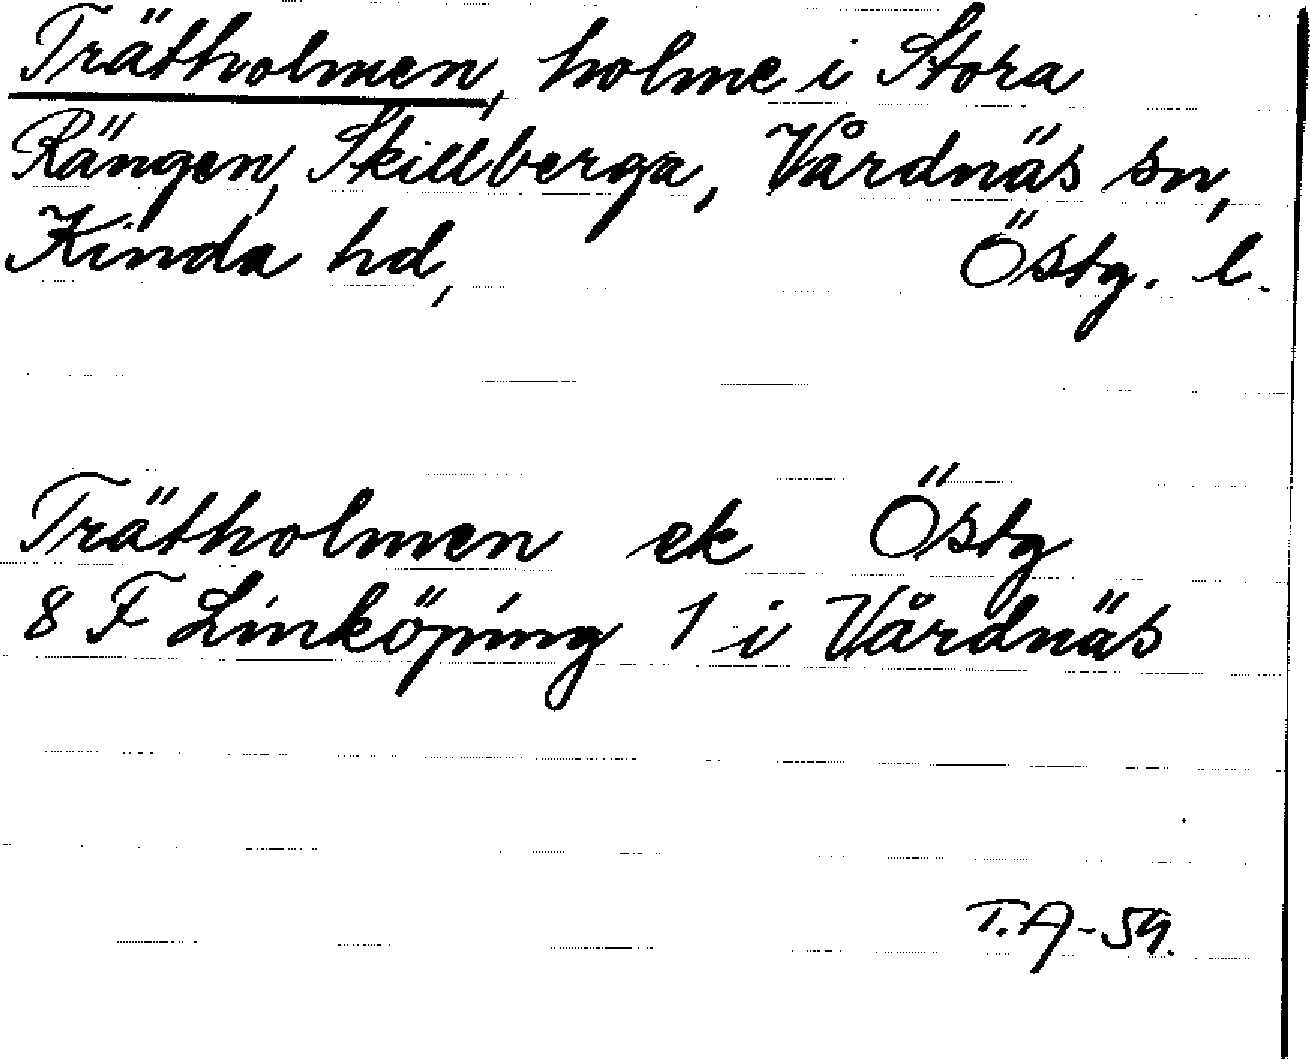 Trätholmen, holme i Stora
Rängen, Skillberga, Vårdnäs sn,
Kinda hd, Östg. l.
Trätholmen ek Östg
8 F Linköping 1 i Vårdnäs
T.A-59.